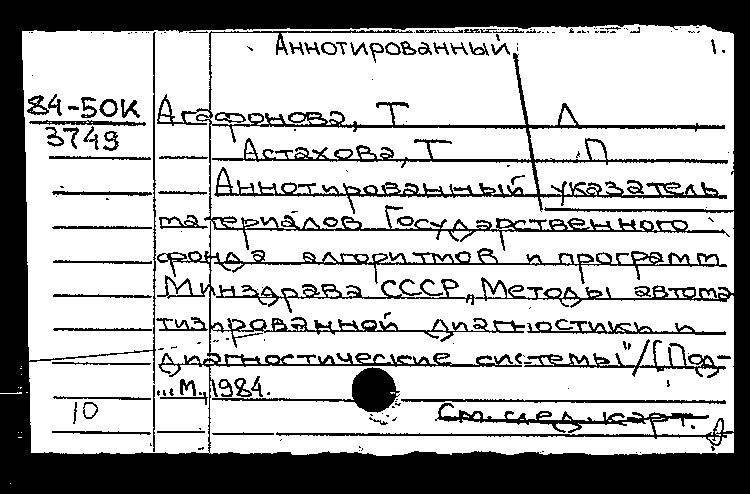 Аннотированный 1.
84-50К Агафонова, Т Л
3749 Астахова, Т П
Аннотированный указатель
материалов Государственного
фонда алгоритмов и программ
Минздрава СССР „Методы автома
тизированной диагностики и
диагностические системы"/[Под-
...М., 1984.
10 См. след. карт.